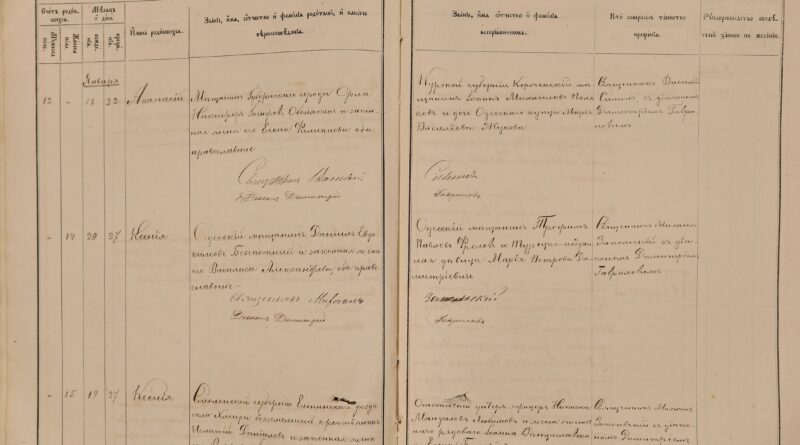 Счетъ родив-
шихся.
Мѣсяцъ
и день
Мужска
пола.
Женска
пола.
рожде-
нія.
креще-
нія.
Имена родившихся.
Званіе, имя, отчество и фамилія родителей, и какого
вѣроисповѣданія.
Званіе, имя, отчество и фамилія
воспріемниковъ.
Кто совершалъ таинство
крещенія.
Рукоприкладство свидѣ-
телей записи по желанію.
Января
12 „ 18 22 Аѳанасій
Мѣщанинъ Губернскаго города Орла
Никифоръ Іосифовъ и закон-
ная жена его Елена Филиппова оба
православные
Священникъ Василій
Діаконъ Димитрій
Курской губерніи Корочанскій мѣ-
щанинъ Іоаннъ Михаиловъ Поля-
ковъ и дочь Одесскаго купца Марія
Василіева Жукова
Гавриловъ
Священникъ Василій
съ діакономъ
Димитріемъ Гаври-
ловымъ
„ 14 20 27 Ксенія
Одесскій мѣщанинъ Даніилъ Евдо-
кимовъ Безчастный и законная жена
его Василиса Александрова оба право-
славные
Священникъ Михаилъ
Діаконъ Димитрій
Одесскій мѣщанинъ Трофимъ
Павловъ Фроловъ и Турецко-поддан-
ная дѣвица Марія Петрова Ди-
митріевичъ
Гавриловъ
Священникъ Михаилъ
съ діа-
кономъ Димитріемъ
Гавриловымъ
„ 15 19 27 Ксенія
Смоленской губерніи Ельнинскаго уѣзда
села
Игнатій Даниловъ и законная жена
Отставной унтеръ офицеръ Никита
Любимовъ и жена отстав-
наго рядоваго Іоанна
Священникъ Михаилъ
съ діако-
номъ Димитріемъ